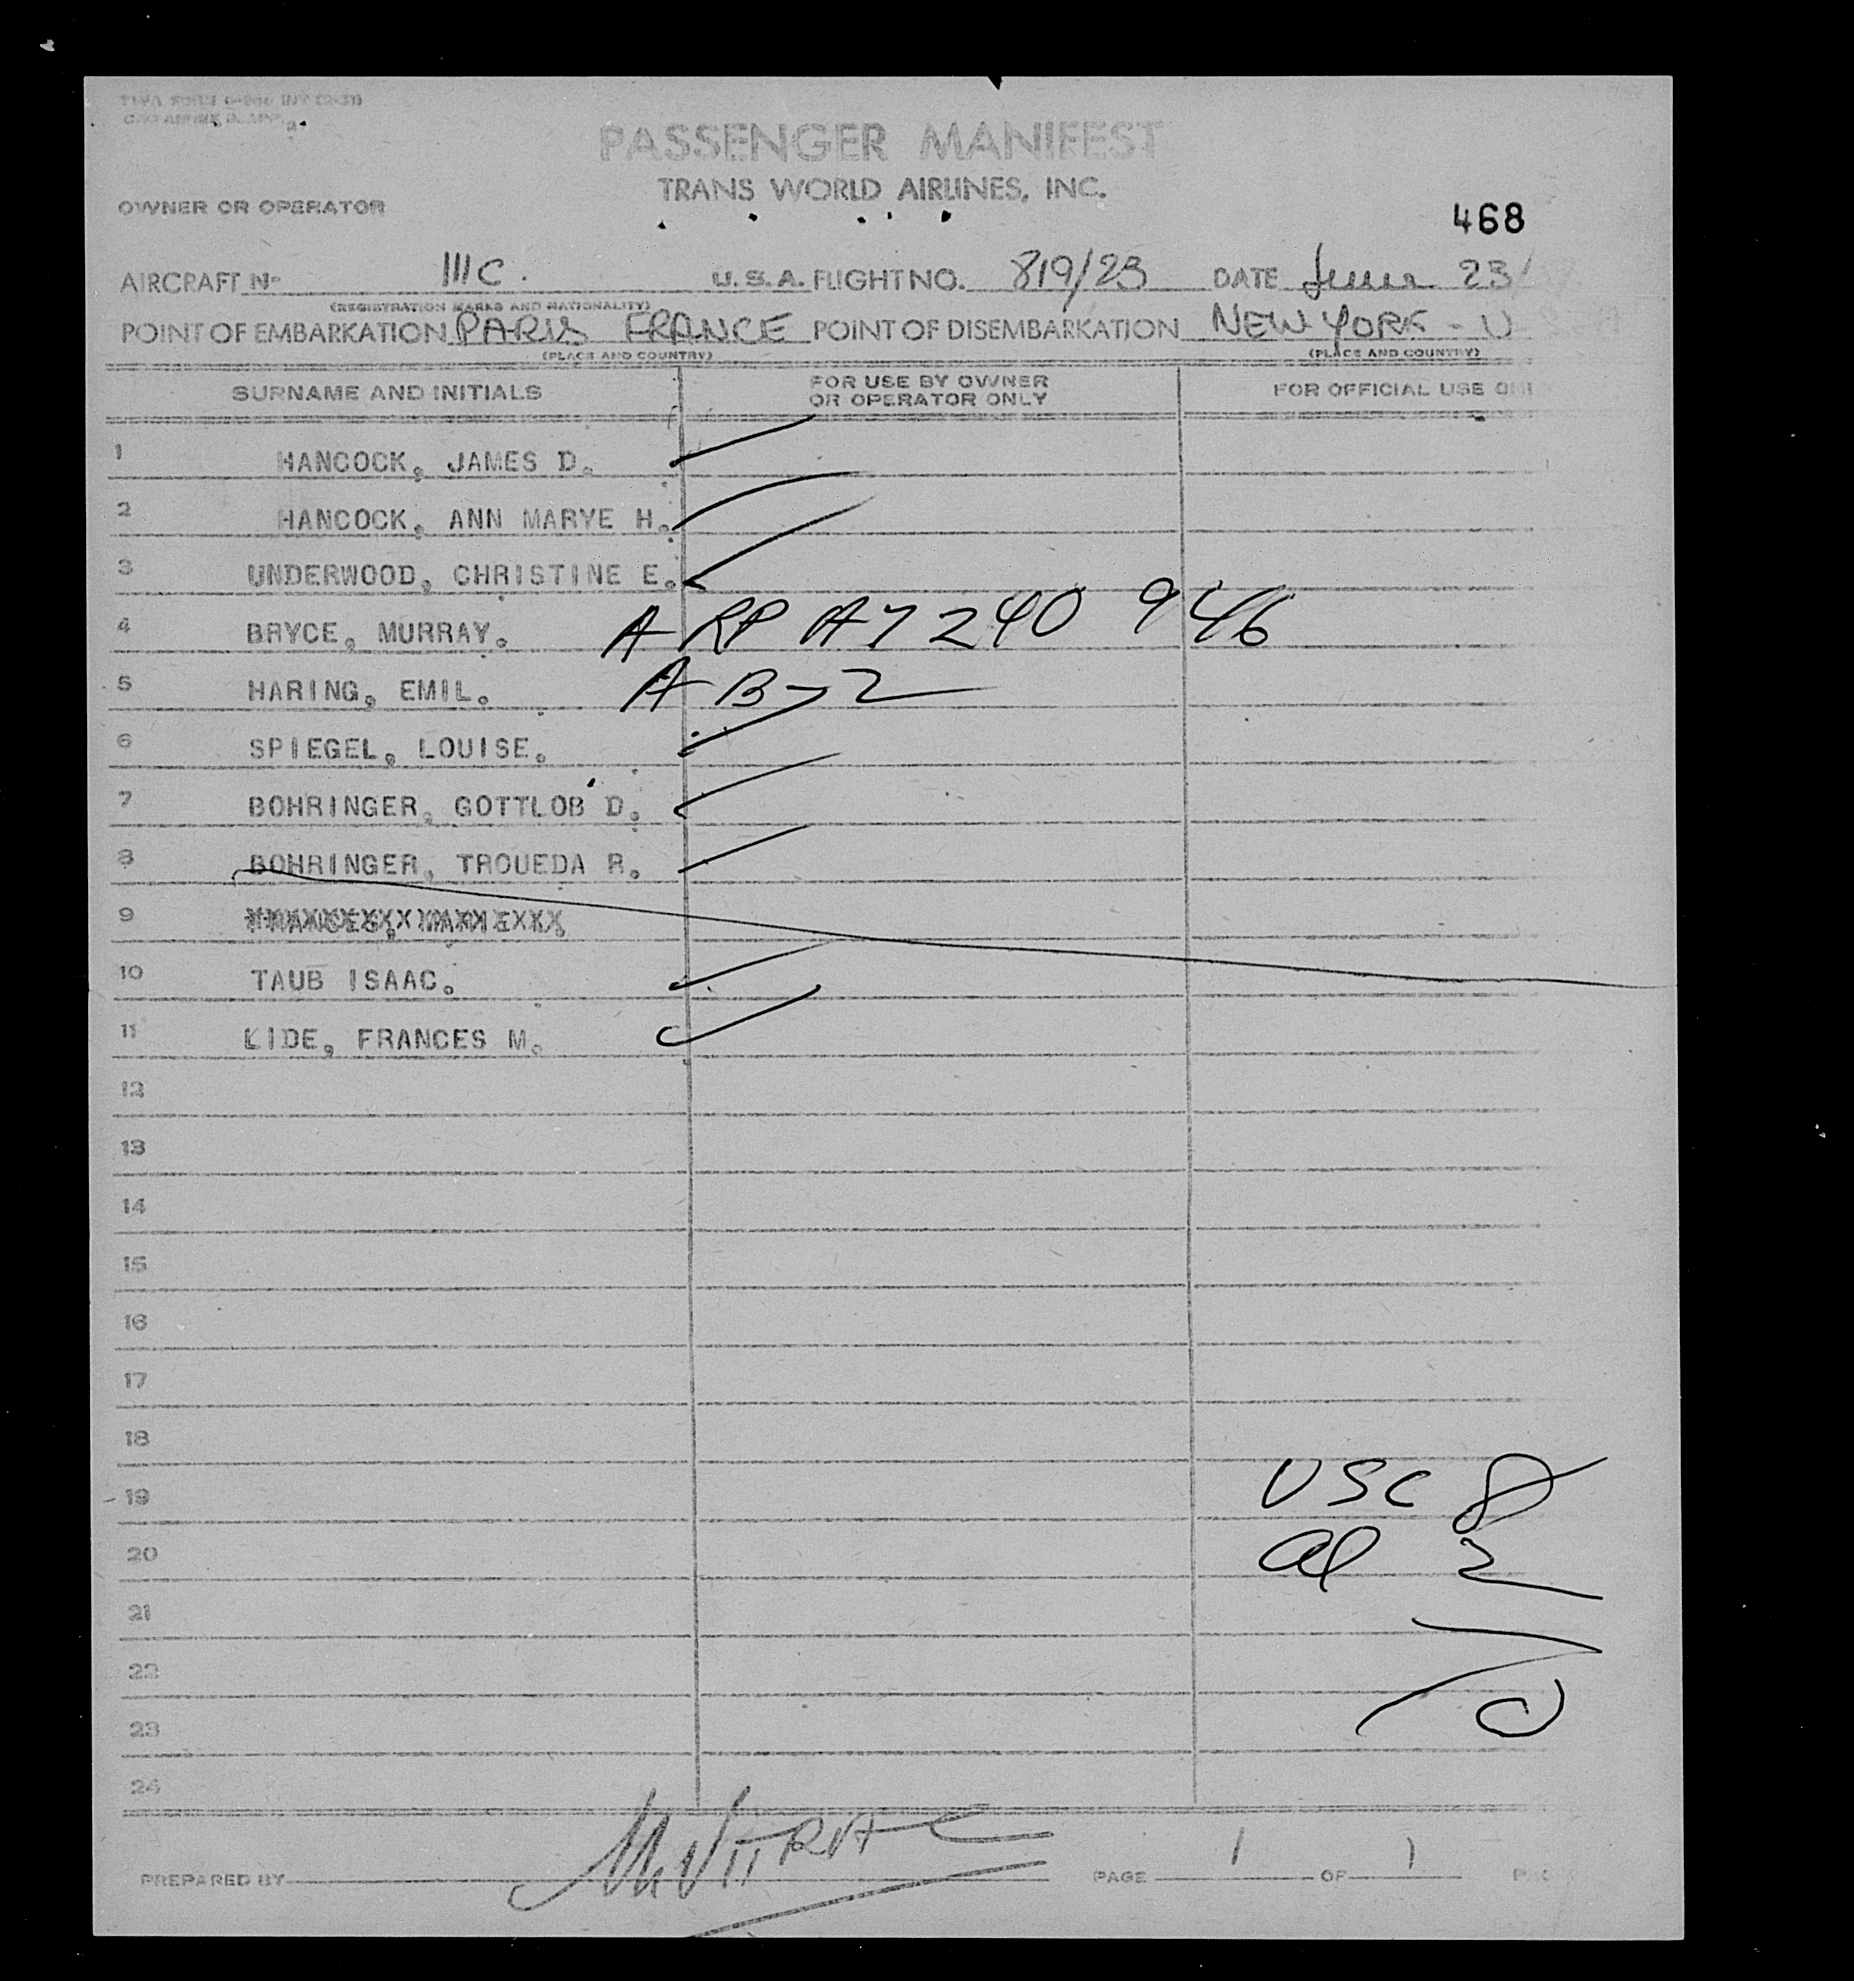 PASSENGER MANIFEST
TRANS WORLD AIRLINES, INC.
OWNER OR OPERATOR
468
AIRCRAFT Nº 111C. U.S.A. FLIGHT NO. 819/23 DATE June 23/
(REGISTRATION MARKS AND NATIONALITY)
POINT OF EMBARKATION PARIS FRANCE POINT OF DISEMBARKATION NEW YORK - U
(PLACE AND COUNTRY) (PLACE AND COUNTRY)
SURNAME AND INITIALS FOR USE BY OWNER OR OPERATOR ONLY FOR OFFICIAL USE ON
1 HANCOCK, JAMES D.
2 HANCOCK, ANN MARYE H.
3 UNDERWOOD, CHRISTINE E.
4 BRYCE, MURRAY. A RP A7 240 946
5 HARING, EMIL. A B-2
6 SPIEGEL, LOUISE.
7 BOHRINGER, GOTTLOB D.
8 BOHRINGER, TROUEDA R.
9
10 TAUB ISAAC.
11 LIDE, FRANCES M.
12
13
14
15
16
17
18
19 USC 8
20 al 2
21
22
23
24
PREPARED BY PAGE 1 OF 1